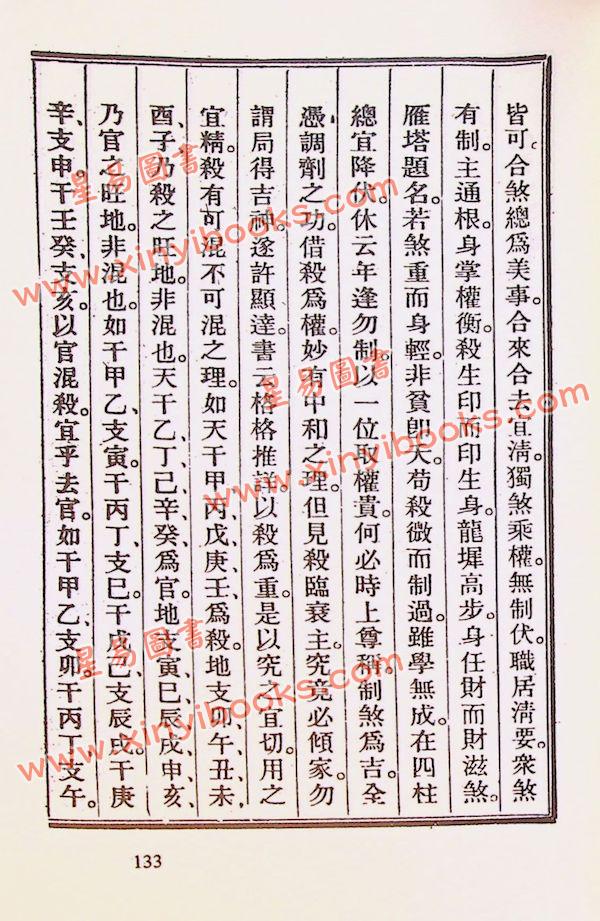 皆可合煞總爲美事。合來合去宜淸。獨煞乘權無制伏。職居淸要。衆煞
有制。主通根。身掌權衡。殺生印而印生身。龍墀高步。身任財而財滋煞。
雁塔題名。若煞重而身輕。非貧卽夭。苟殺微而制過。雖學無成。在四柱
總宜降伏。休云年逢勿制。以一位取權貴。何必時上尊稱。制煞爲吉。全
憑調劑之功。借殺爲權。妙有中和之理。但見殺臨衰主。究竟必傾家。勿
謂局得吉神。遂許顯達。書云格格推詳。以殺爲重。是以究之宜切。用之
宜精。殺有可混不可混之理。如天干甲、丙、戊、庚、壬、爲殺。地支卯、午、丑、未、
酉、子、乃殺之旺地。非混也。天干乙、丁、己、辛、癸、爲官。地支寅、巳、辰、戌、申、亥、
乃官之旺地。非混也。如干甲乙支寅。干丙丁支巳。干戊己支辰戌。干庚
辛、支申。干壬癸、支亥。以官混殺。宜乎去官。如干甲乙、支卯。干丙丁支午。
133
星易圖書
www.xinyibooks.com
星易圖書
www.xinyibooks.com
星易圖書
www.xinyibooks.com